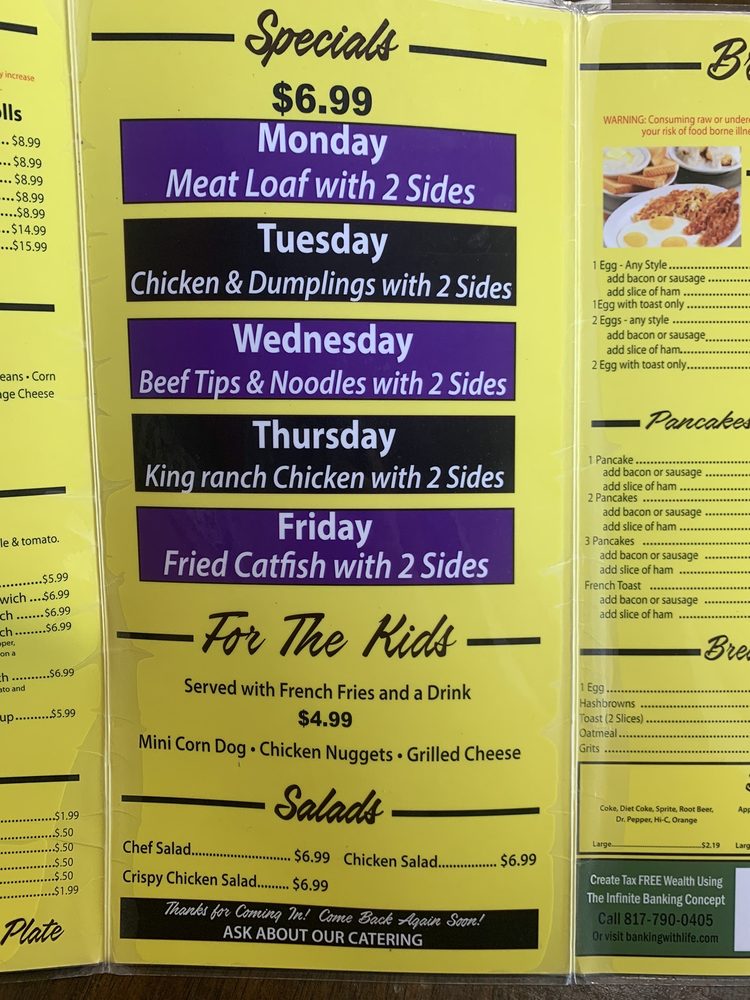 y increase
lls
... $8.99
... $8.99
... $8.99
... $8.99
....$8.99
... $14.99
...$15.99
eans • Corn
age Cheese
le & tomato.
....$5.99
wich ....$6.99
ch .......$6.99
ch ........$6.99
per,
on a
h .........$6.99
ato and
up..........$5.99
....$1.99
....$.50
....$.50
....$.50
....$.50
....$1.99
Plate
Specials
$6.99
Monday
Meat Loaf with 2 Sides
Tuesday
Chicken & Dumplings with 2 Sides
Wednesday
Beef Tips & Noodles with 2 Sides
Thursday
King ranch Chicken with 2 Sides
Friday
Fried Catfish with 2 Sides
For The Kids
Served with French Fries and a Drink
$4.99
Mini Corn Dog • Chicken Nuggets • Grilled Cheese
Salads
Chef Salad............................ $6.99 Chicken Salad................ $6.99
Crispy Chicken Salad......... $6.99
Thanks for Coming In! Come Back Again Soon!
ASK ABOUT OUR CATERING
WARNING: Consuming raw or under
your risk of food borne illne
1 Egg - Any Style
add bacon or sausage
add slice of ham
1Egg with toast only
2 Eggs - any style
add bacon or sausage
add slice of ham
2 Egg with toast only
Pancakes
1 Pancake
add bacon or sausage
add slice of ham
2 Pancakes
add bacon or sausage
add slice of ham
3 Pancakes
add bacon or sausage
add slice of ham
French Toast
add bacon or sausage
add slice of ham
Brea
1 Egg
Hashbrowns
Toast (2 Slices)
Oatmeal
Grits
Coke, Diet Coke, Sprite, Root Beer,
Dr. Pepper, Hi-C, Orange
Large..............................$2.19
Larg
Create Tax FREE Wealth Using
The Infinite Banking Concept
Call 817-790-0405
Or visit bankingwithlife.com